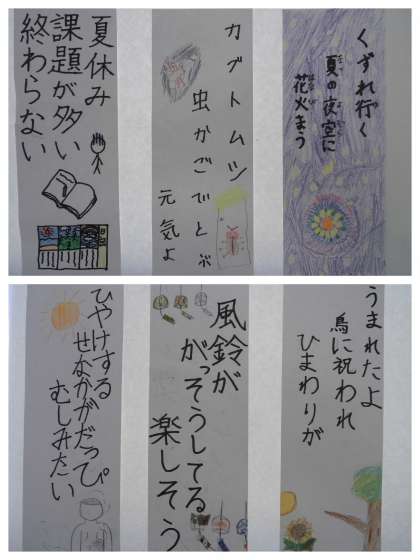 くずれ行く
夏の夜空に
花火まう
カブトムシ
虫かごでとぶ
元気よ
夏休み
課題が多い
終わらない
うまれたよ
鳥に祝われ
ひまわりが
風鈴が
がっそうしてる
楽しそう
ひやけする
せなかがだっぴ
むしみたい